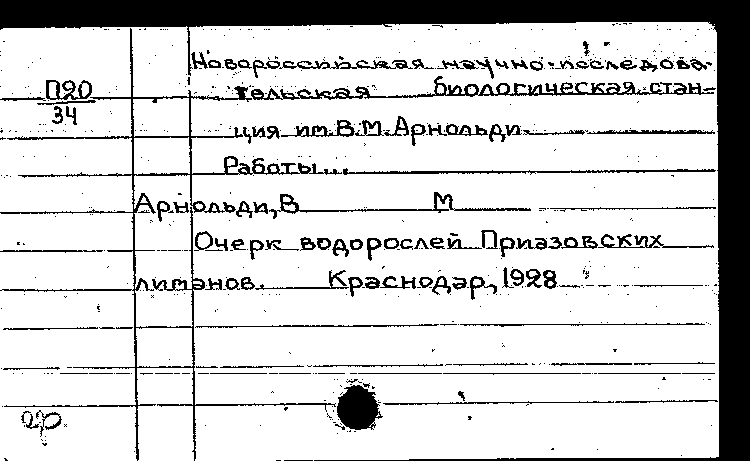 Новороссийская научно-исследова-
П20
34
тельская биологическая стан-
ция им. В.М. Арнольди.
Работы...
Арнольди, В М
Очерк водорослей Приазовских
лиманов. Краснодар, 1928